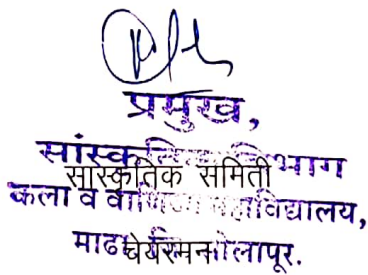 प्रमुख,
सांस्कृतिक विभाग
सांस्कृतिक समिती
कला व वाणिज्य महाविद्यालय,
माढा सोलापूर.
चेयरमन